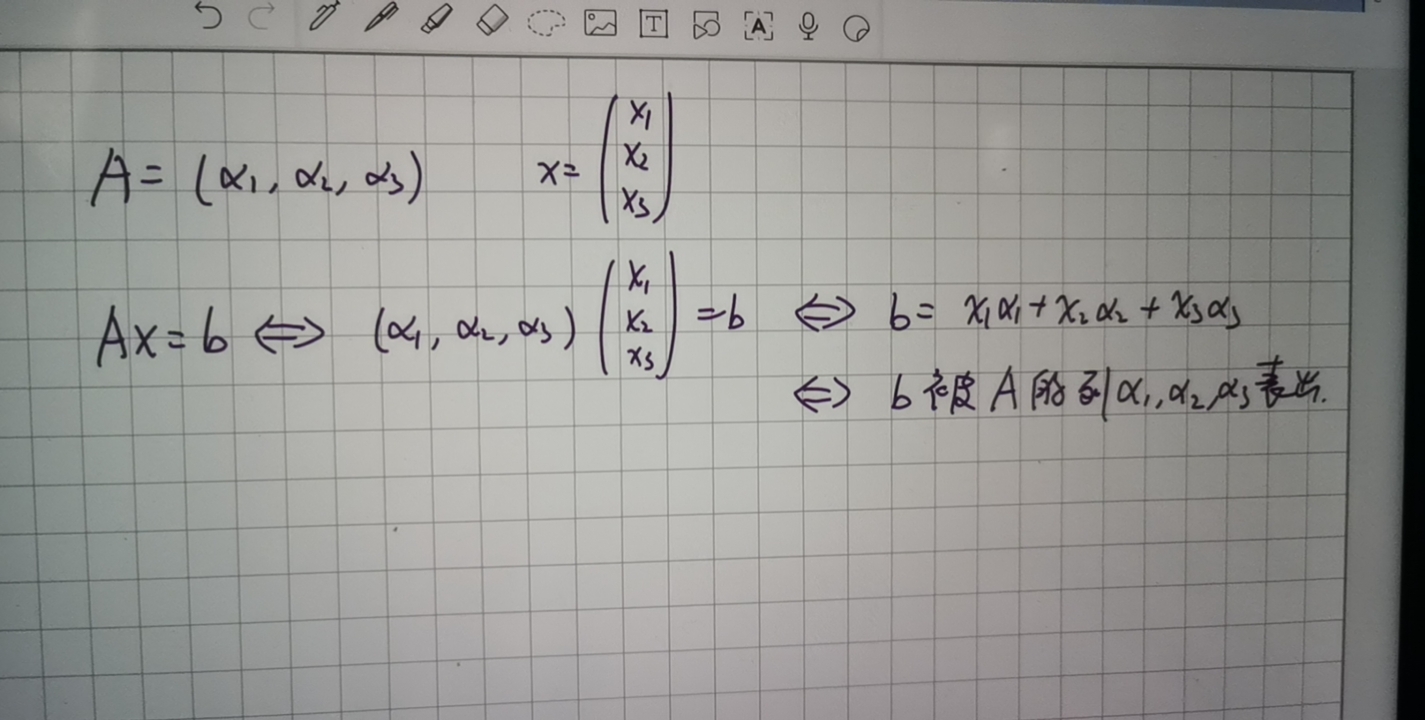 A = (α₁, α₂, α₃) x = (x₁ x₂ x₃)
Ax = b ⟺ (α₁, α₂, α₃) (x₁ x₂ x₃) = b ⟺ b = x₁α₁ + x₂α₂ + x₃α₃
⟺ b 被 A 的列 α₁, α₂, α₃ 表出.